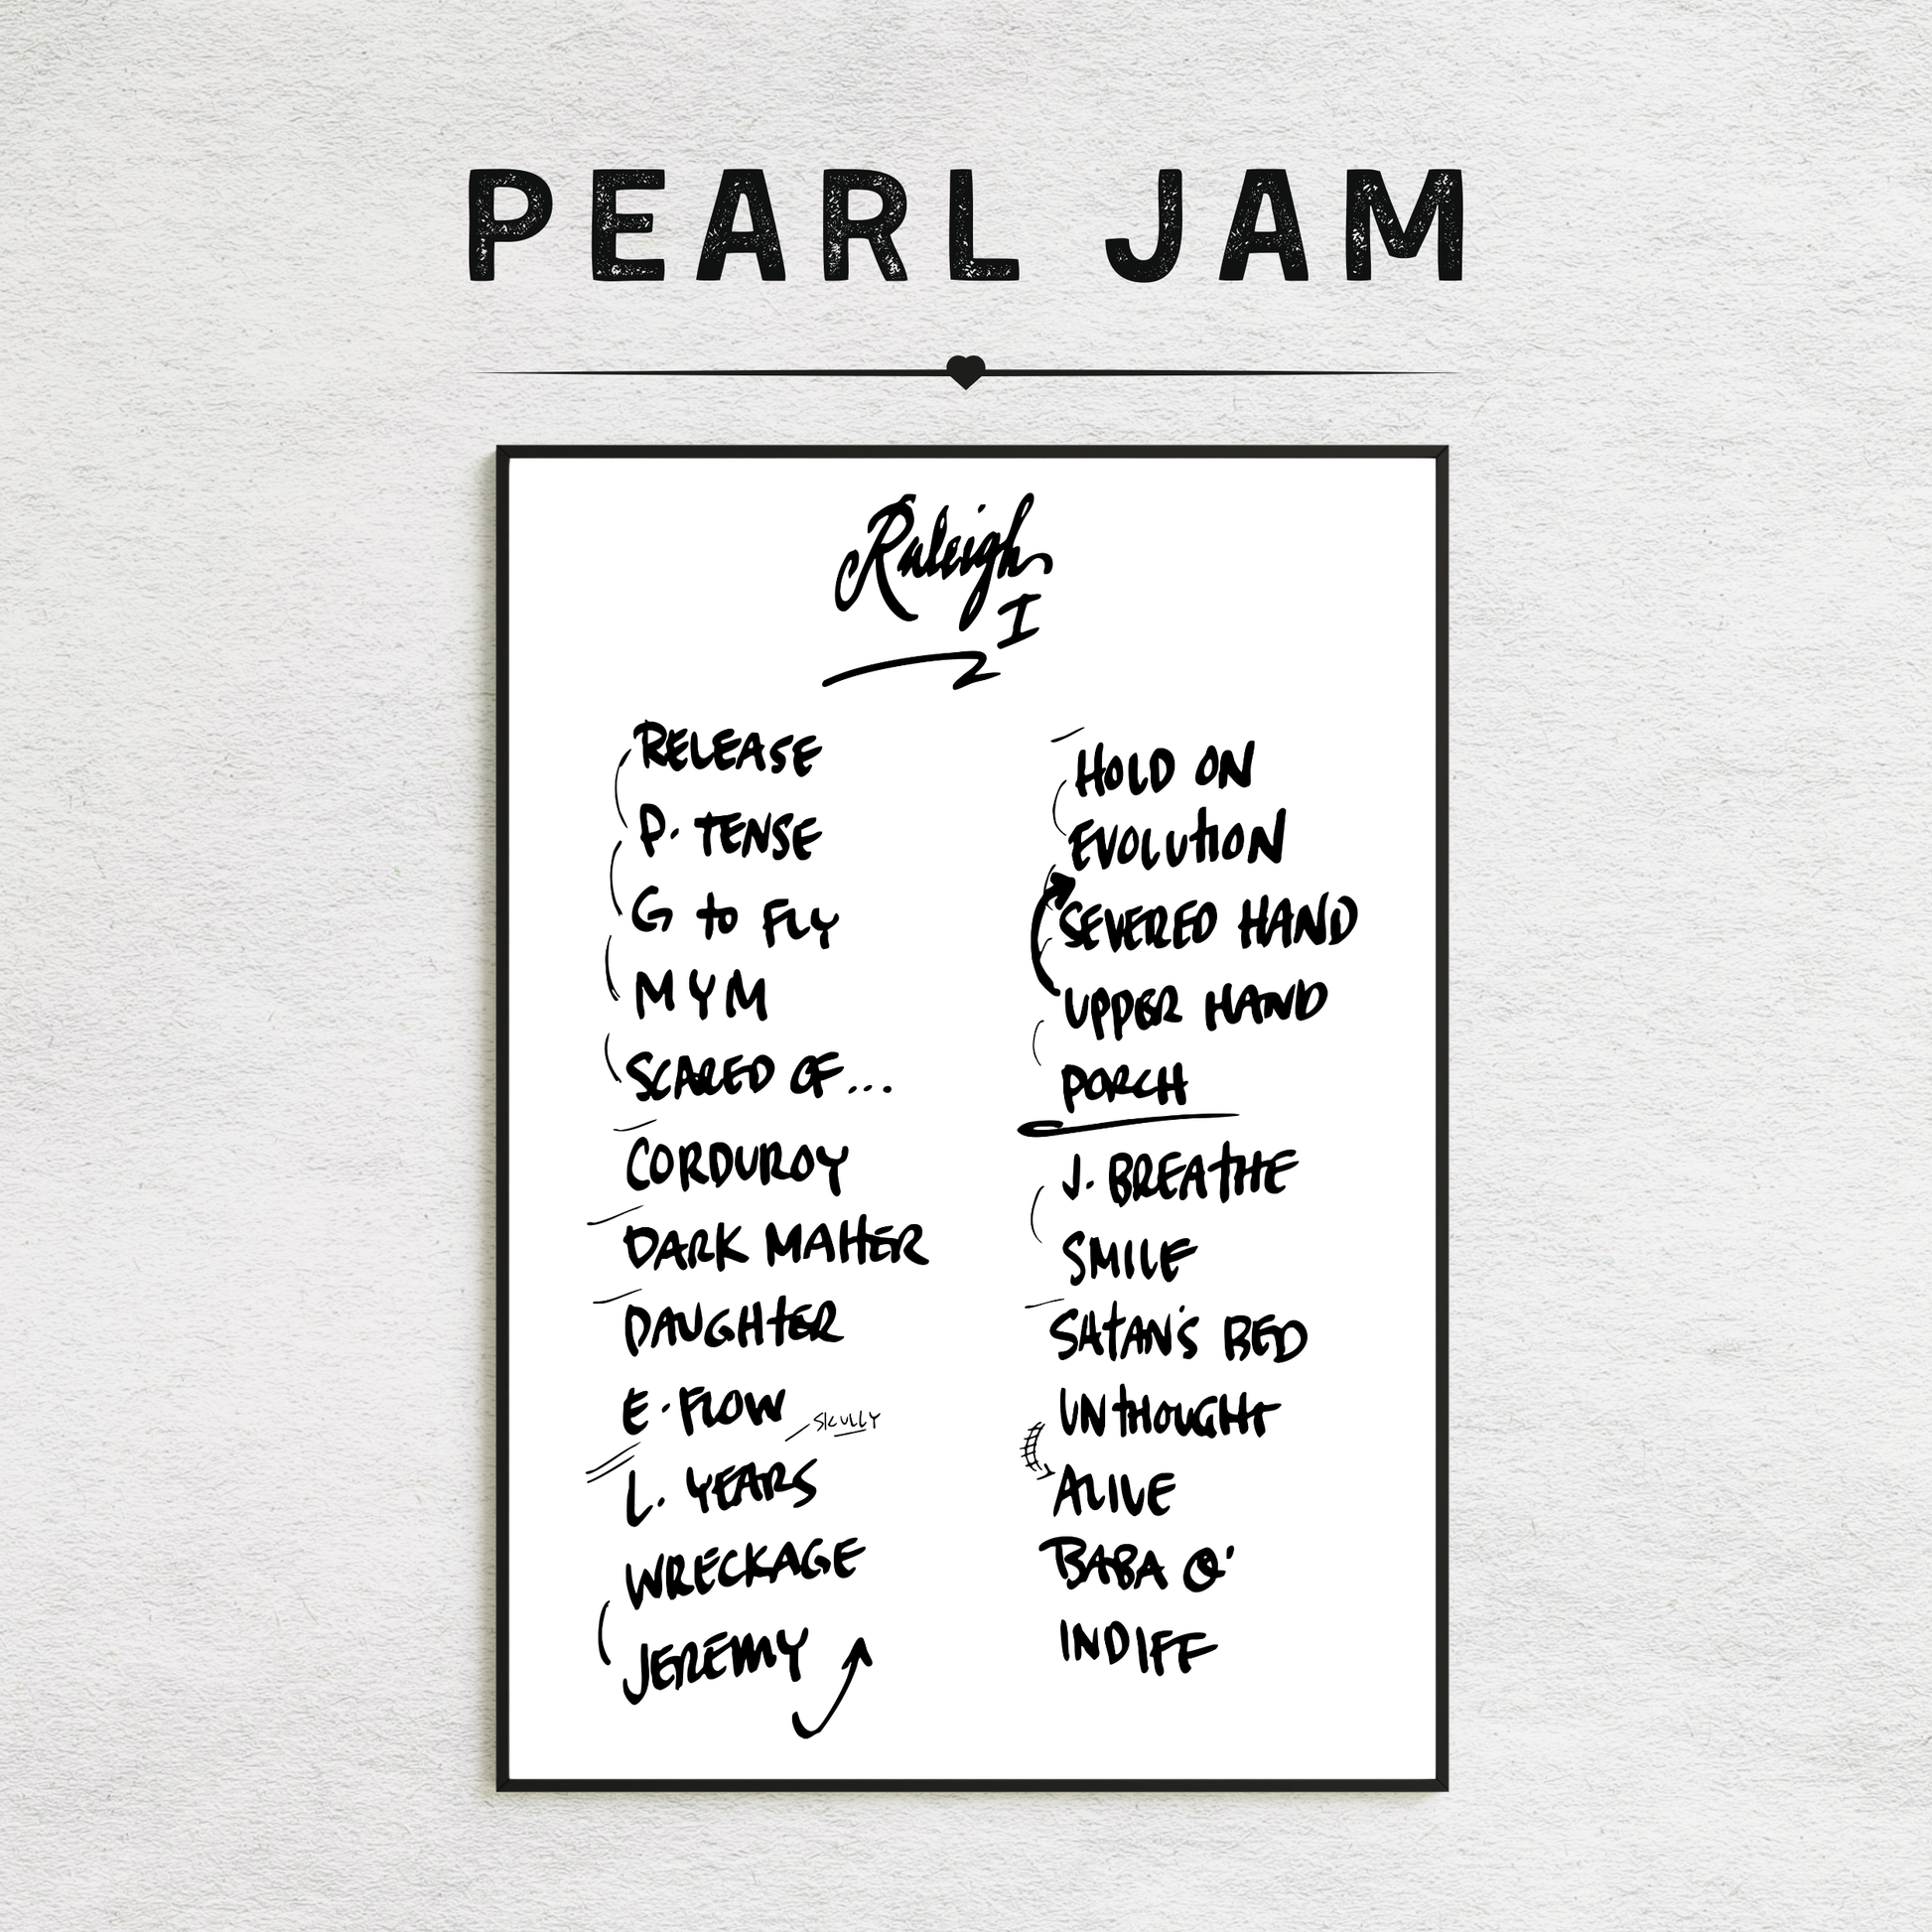 PEARL JAM
Raleigh
I
RELEASE
P. TENSE
G to FLY
MYM
SCARED OF...
CORDUROY
DARK MATTER
DAUGHTER
E. FLOW
SKULLY
L. YEARS
WRECKAGE
JEREMY
HOLD ON
EVOLUTION
SEVERED HAND
UPPER HAND
PORCH
J. BREATHE
SMILE
SATAN'S BED
UNTHOUGHT
ALIVE
BABA O'
INDIFF